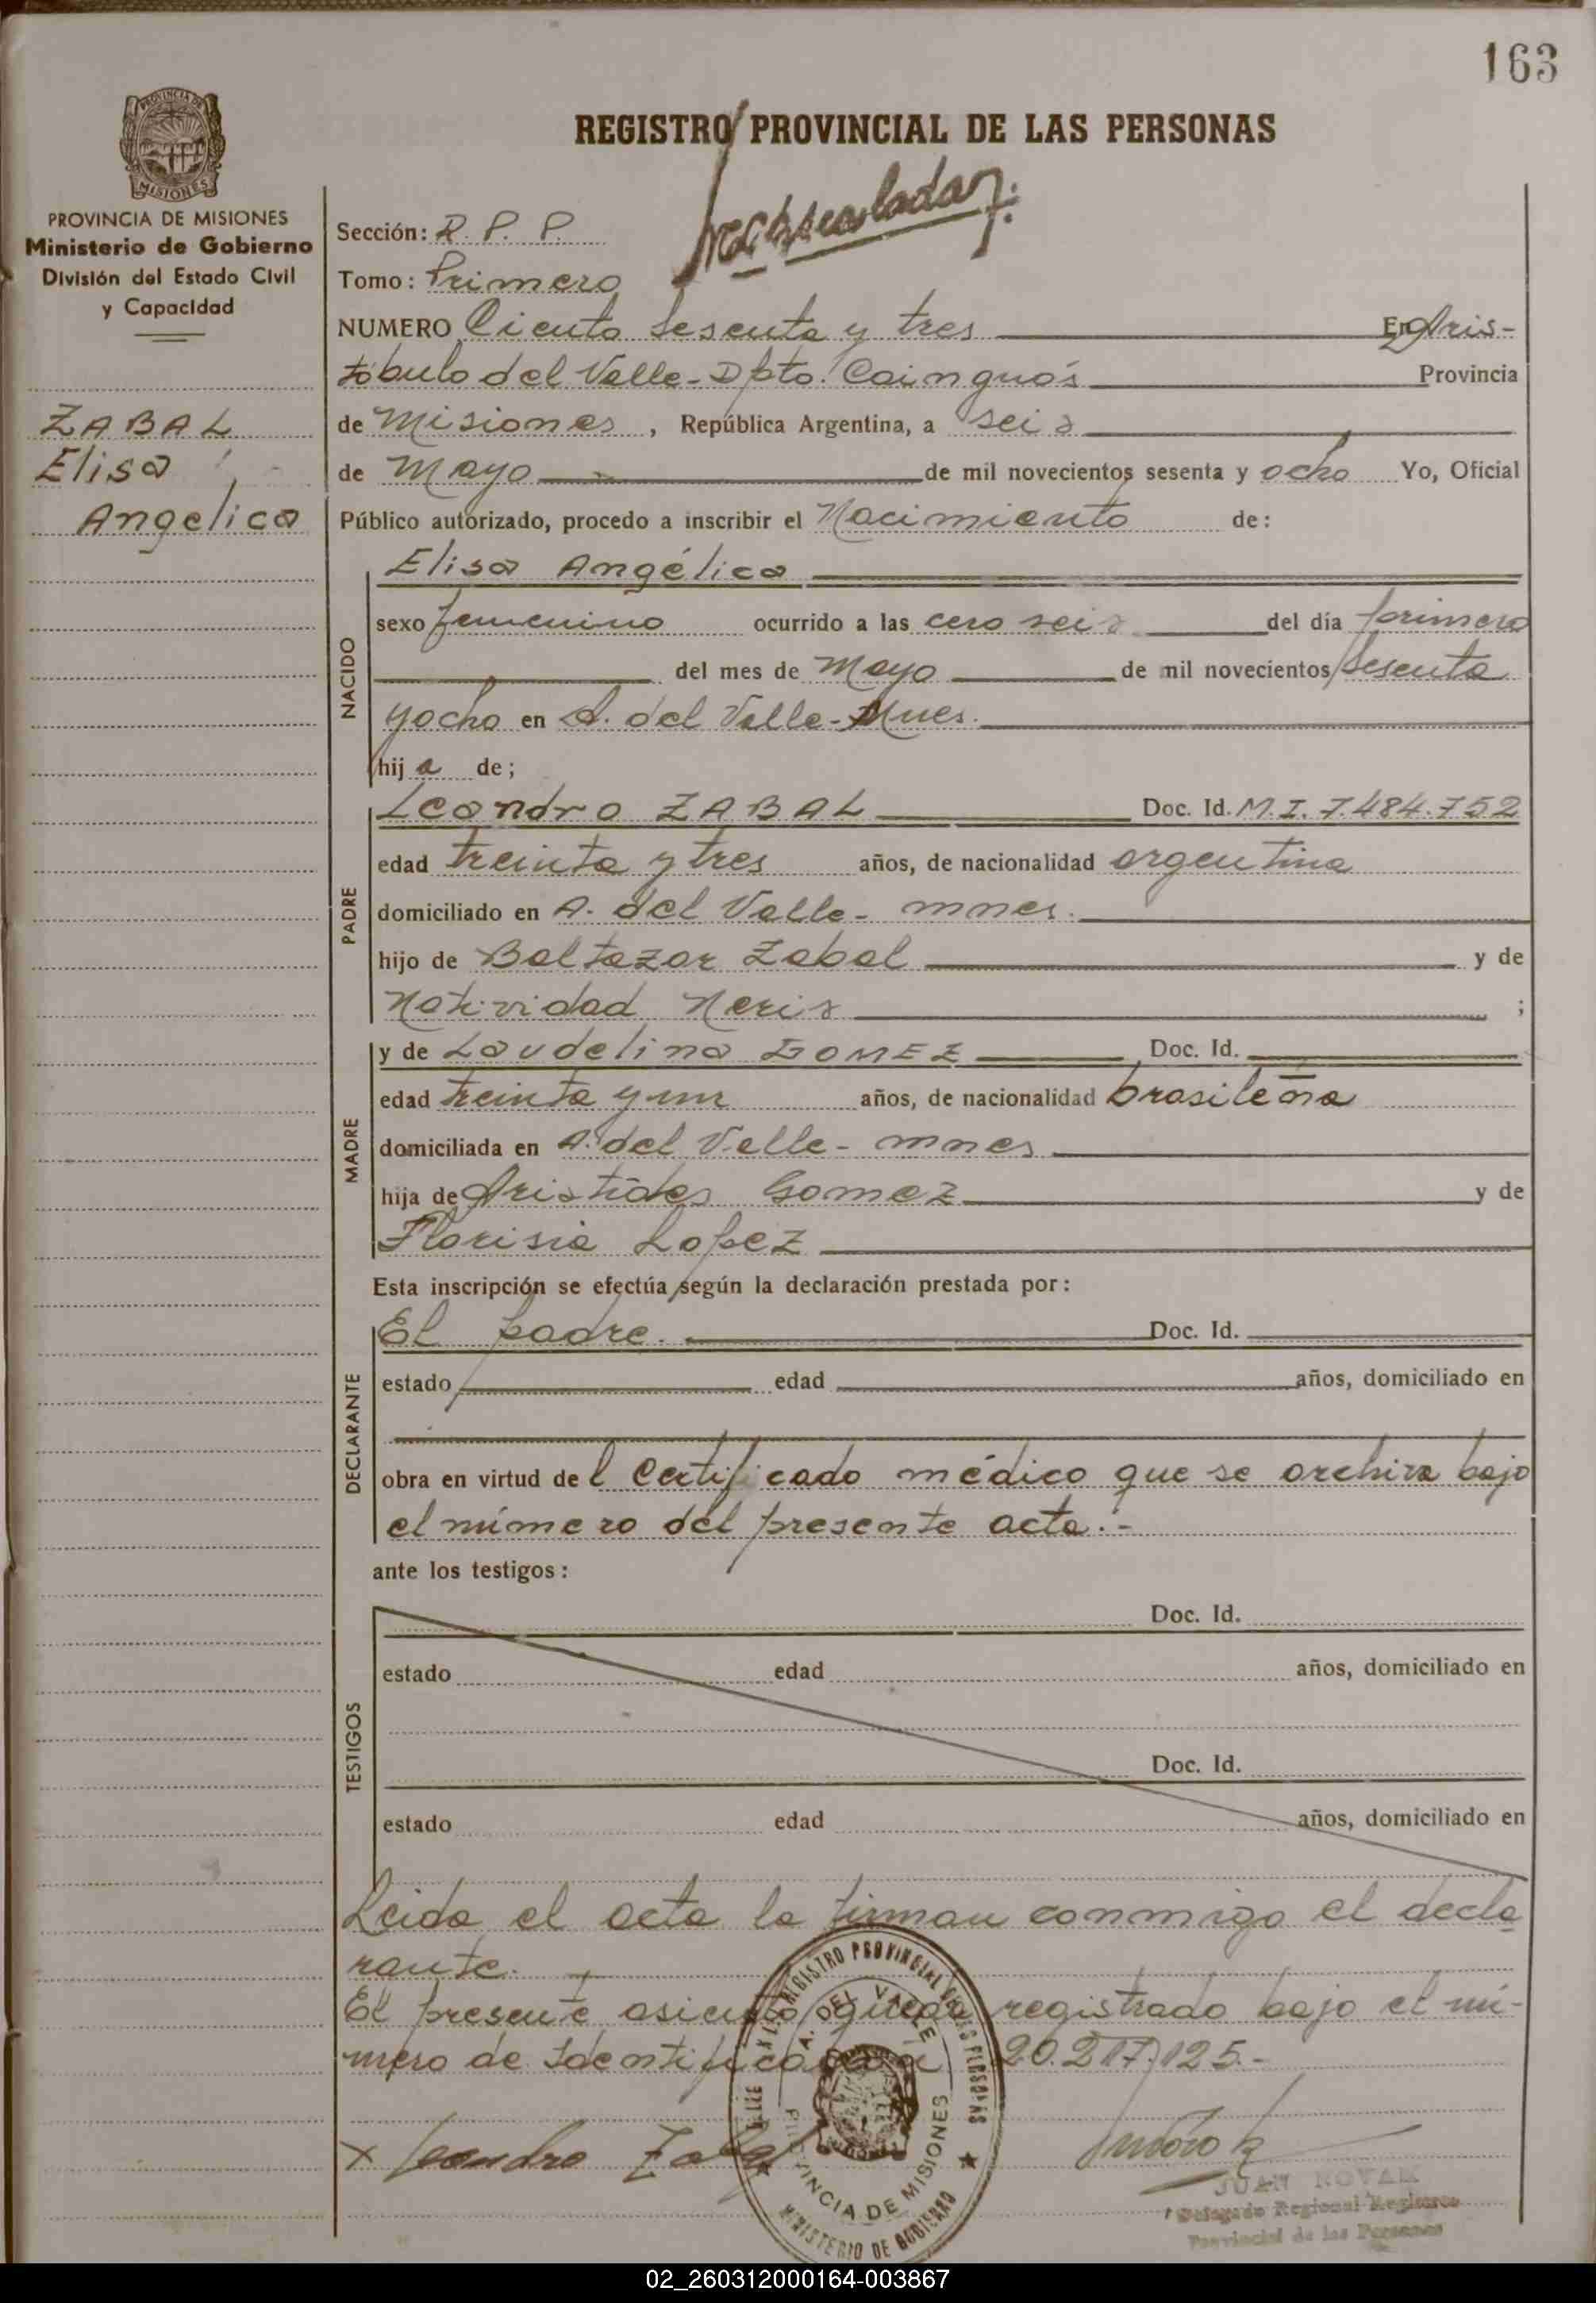 163
PROVINCIA DE
MISIONES
REGISTRO PROVINCIAL DE LAS PERSONAS
PROVINCIA DE MISIONES
Ministerio de Gobierno
División del Estado Civil
y Capacidad
ZABAL
Elisa
Angelica
Sección: R. P. P.
Tomo: Primero
NUMERO Ciento Sesenta y tres En Aris-
tóbulo del Valle - Dpto. Cainguás Provincia
de Misiones, República Argentina, a seis
de Mayo de mil novecientos sesenta y ocho Yo, Oficial
Público autorizado, procedo a inscribir el Nacimiento de:
NACIDO
Elisa Angélica
sexo femenino ocurrido a las cero seis del día primero
del mes de Mayo de mil novecientos Sesenta
y ocho en A. del Valle - Mnes.
hija de;
PADRE
Leandro ZABAL Doc. Id. M.I. 7.484.752
edad treinta y tres años, de nacionalidad argentina
domiciliado en A. del Valle - mnes.
hijo de Baltazar Zabal y de
Natividad Neris ;
MADRE
y de Laudelina GOMEZ Doc. Id.
edad treinta y un años, de nacionalidad brasileña
domiciliada en A. del Valle - mnes
hija de Aristides Gomez y de
Florisia Lopez
Esta inscripción se efectúa según la declaración prestada por:
DECLARANTE
El padre. Doc. Id.
estado edad años, domiciliado en
obra en virtud del Certificado médico que se archiva bajo
el número del presente acta.-
ante los testigos:
TESTIGOS
Doc. Id.
estado edad años, domiciliado en
Doc. Id.
estado edad años, domiciliado en
Leida el acta la firman conmigo el decla
rante.
El presente asiento queda registrado bajo el nú-
mero de Identificación 20.217.125.-
x Leandro Zabal
REGISTRO PROVINCIAL DE LAS PERSONAS
A. DEL VALLE
PROVINCIA DE MISIONES
MINISTERIO DE GOBIERNO
JUAN NOVAK
Delegado Regional Registro
Provincial de las Personas
02_260312000164-003867